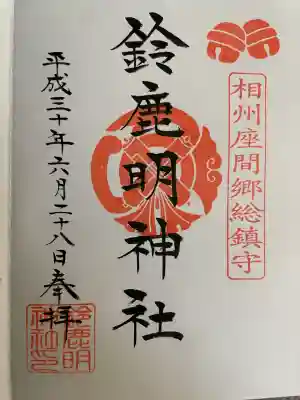 相州座間郷総鎮守
鈴鹿明神社
平成三十年六月二十八日奉拝
鈴鹿明
神社之印